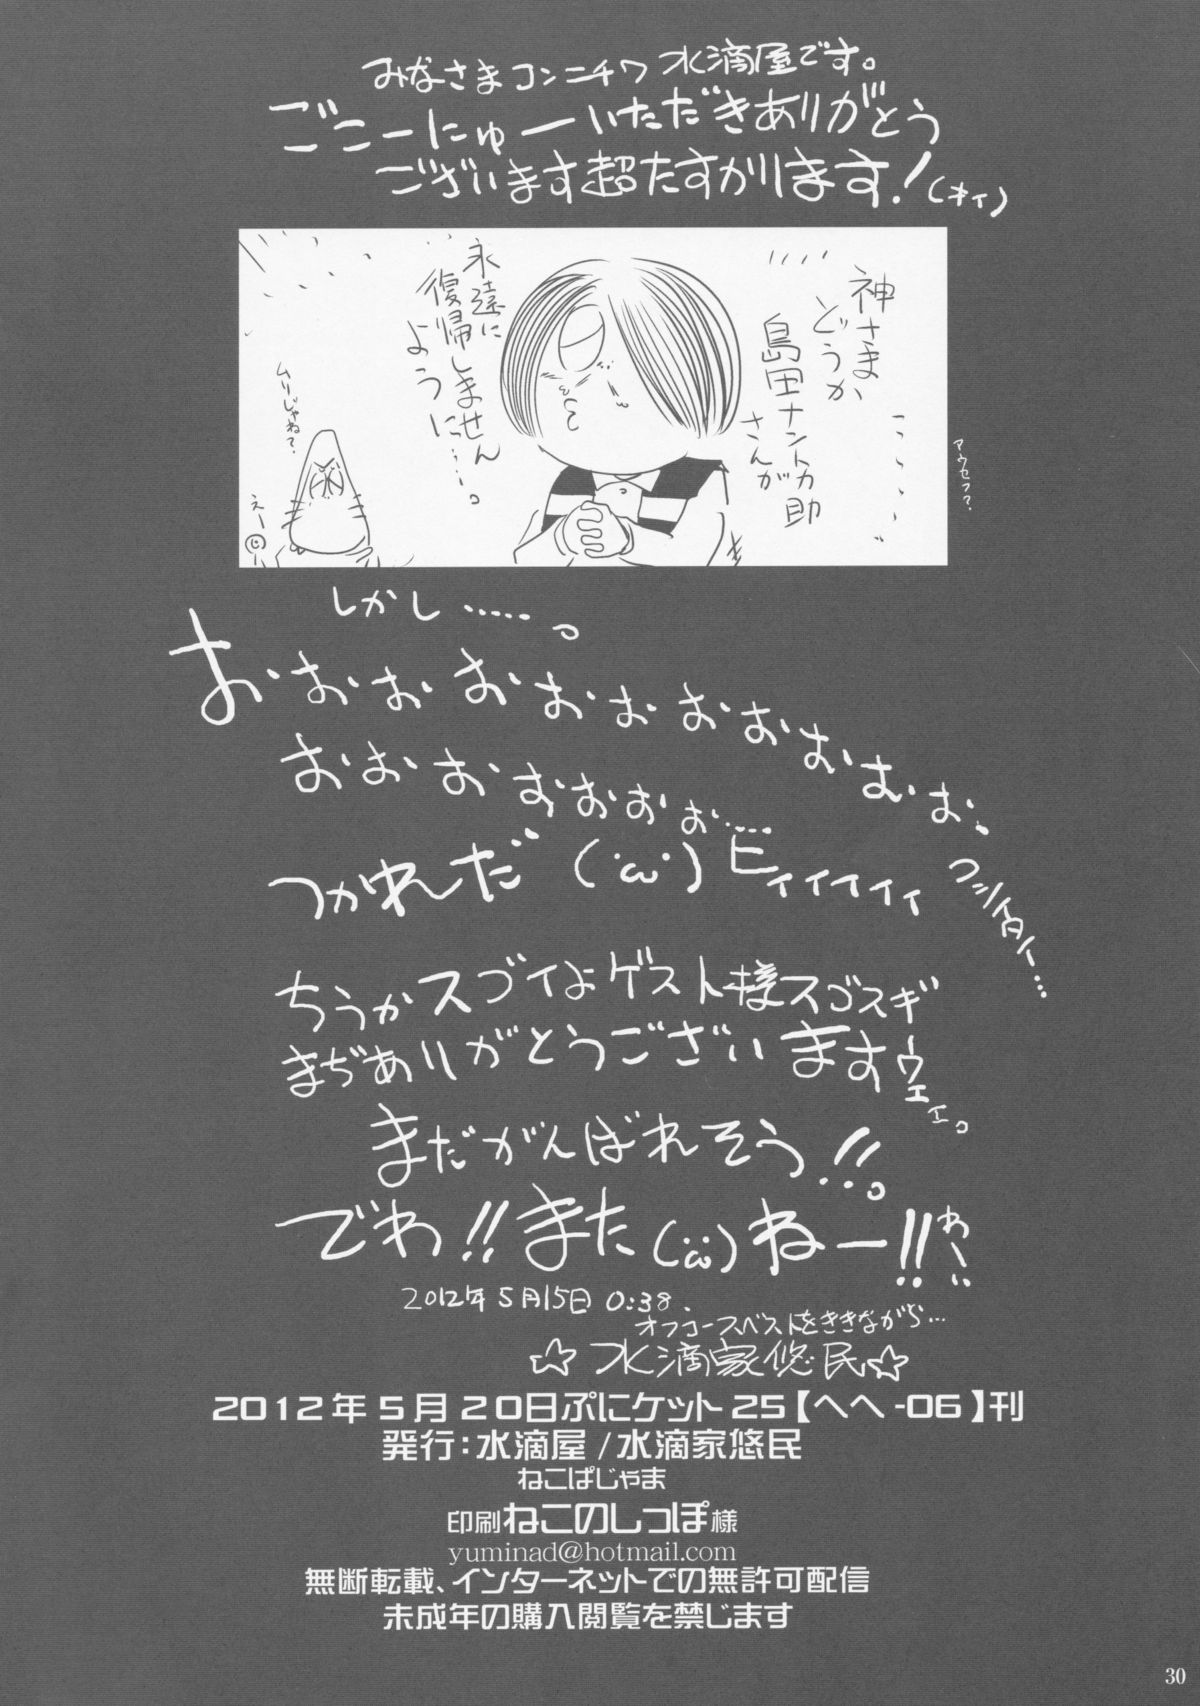 みなさまコンニチワ 水滴屋です。
ごこーにゅーいただきありがとう
ございます超たすかります!(オイ)
神さま
どうか
島田ナントカ助
さんが
永遠に
復帰しません
ように…。
ムリじゃね?
えー
アウセフ?
しかし……。
おぉぉぉぉぉぉぉぉぉぉ、
おぉぉぉぉぉぉ……
つかれだ(˙ω˙)ビィィィィィ
コシイタイ…
ちうかスゴイよゲスト様スゴスギ
まぢありがとうございますウェェ。
まだがんばれそう!!。
でわ!!また(˙ω˙)ねー!!わーい
2012年5月15日 0:38.
オフコースベストをききながら…
☆水滴家悠民☆
2012年5月20日ぷにケット25【へへ-06】刊
発行:水滴屋/水滴家悠民
ねこぱじゃま
印刷ねこのしっぽ様
yuminad@hotmail.com
無断転載、インターネットでの無許可配信
未成年の購入閲覧を禁じます
30